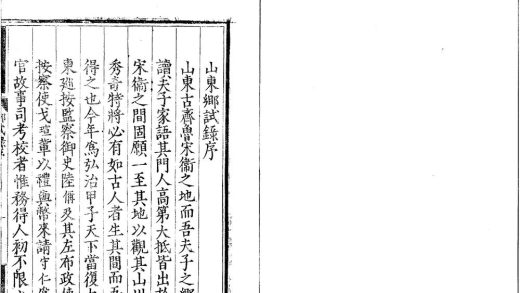 山東鄉試錄序
山東古齊魯宋衞之地而吾夫子之鄉
讀夫子家語其門人高第大抵皆出
宋衞之間固願一至其地以觀其山川
秀奇特將必有如古人者生其間而吾
得之也今年爲弘治甲子天下當復
東廵按監察御史陸偁及其左布政使
按察使戈瑄輩以禮與幣來請守仁
官故事司考校者惟務得人初不限